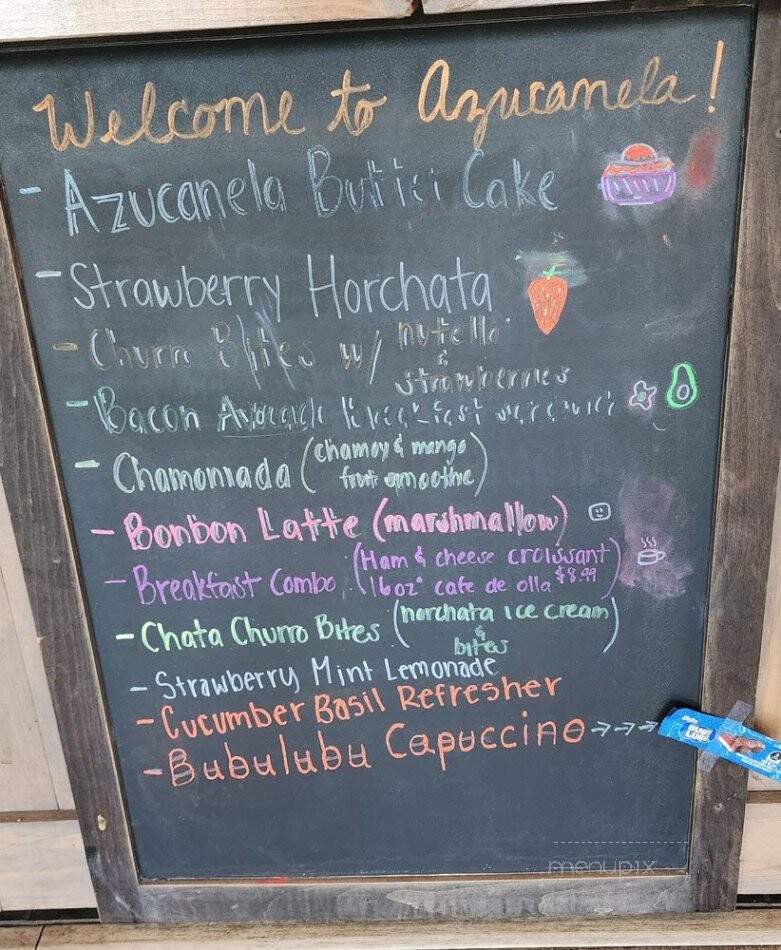 Welcome to Azucanela!
- Azucanela Cake
- Strawberry Horchata
- Churro Bites w/ nutella
&
strawberries
- Bacon Avocado Breakfast sandwich
- Chamoniada (chamoy & mango
fruit smoothie)
- Bonbon Latte (marshmallow)
- Breakfast Combo (Ham & cheese croissant
16oz° cafe de olla $8.99)
- Chata Churro Bites (horchata ice cream
&
bites)
- Strawberry Mint Lemonade
- Cucumber Basil Refresher
- Bubulubu Capuccino →→→
menupix